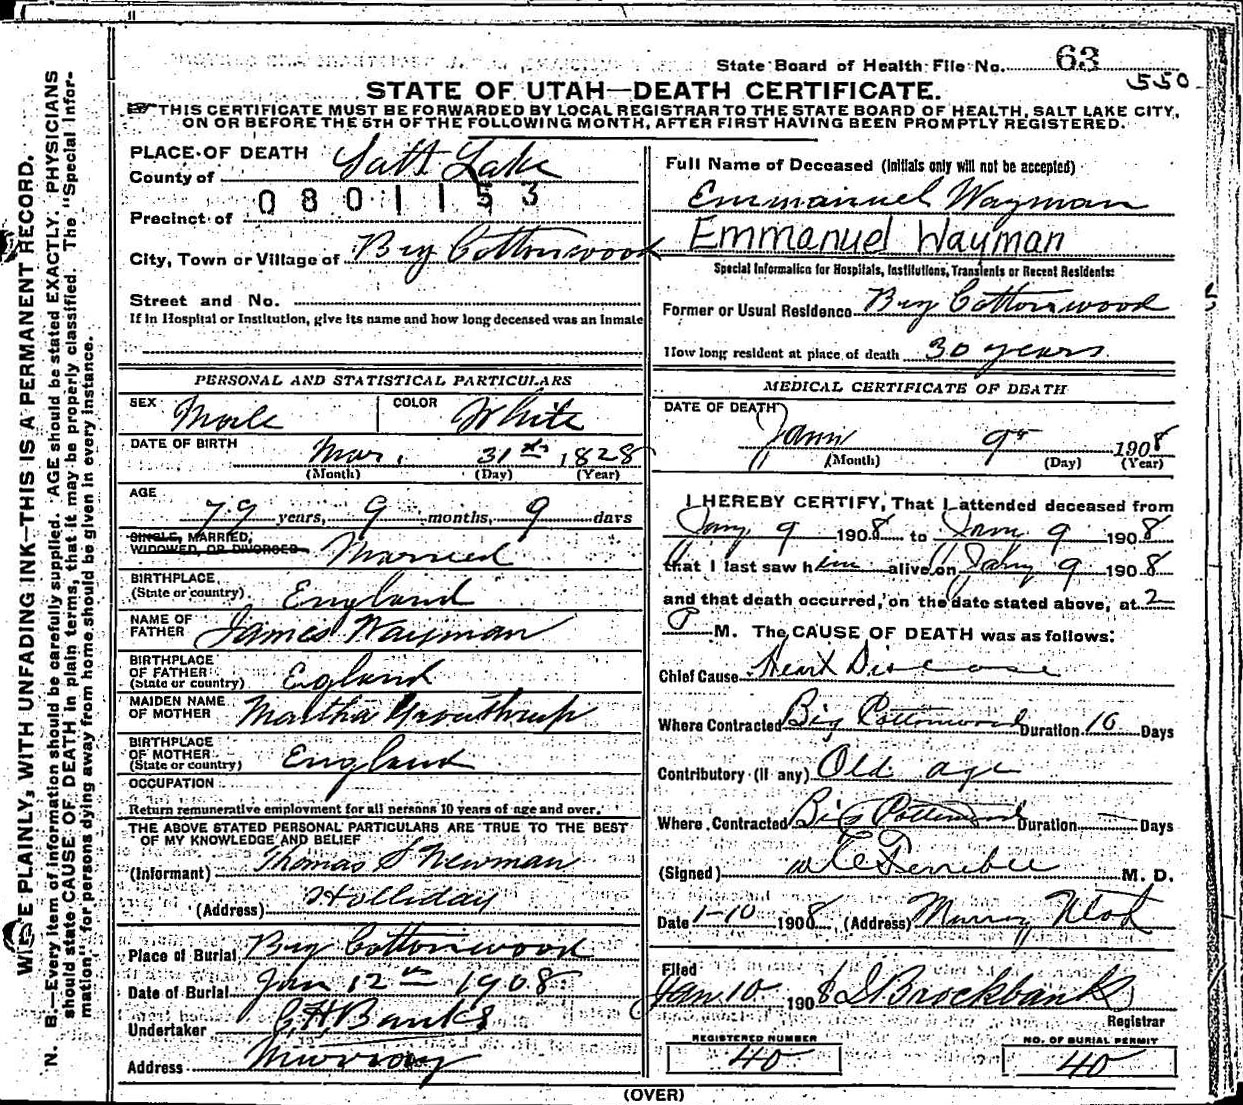 State Board of Health File No. 63
550
STATE OF UTAH—DEATH CERTIFICATE.
THIS CERTIFICATE MUST BE FORWARDED BY LOCAL REGISTRAR TO THE STATE BOARD OF HEALTH, SALT LAKE CITY,
ON OR BEFORE THE 5TH OF THE FOLLOWING MONTH, AFTER FIRST HAVING BEEN PROMPTLY REGISTERED.
PLACE OF DEATH
County of Salt Lake
0801153
Precinct of
City, Town or Village of Big Cottonwood
Street and No.
If in Hospital or Institution, give its name and how long deceased was an Inmate
PERSONAL AND STATISTICAL PARTICULARS
SEX Male COLOR White
DATE OF BIRTH Mar. 31st 1828
(Month) (Day) (Year)
AGE
79 years, 9 months, 9 days
SINGLE, MARRIED,
WIDOWED, OR DIVORCED Married
BIRTHPLACE
(State or country) England
NAME OF
FATHER James Wayman
BIRTHPLACE
OF FATHER
(State or country) Egland
MAIDEN NAME
OF MOTHER Martha
BIRTHPLACE
OF MOTHER
(State or country) England
OCCUPATION
Return remunerative employment for all persons 10 years of age and over.
THE ABOVE STATED PERSONAL PARTICULARS ARE TRUE TO THE BEST
OF MY KNOWLEDGE AND BELIEF
(Informant) Thomas S Newman
(Address) Holliday
Place of Burial Big Cottonwood
Date of Burial Jan 12th 1908
Undertaker G H Banks
Address Murray
Full Name of Deceased (Initials only will not be accepted)
Emmanuel Wayman
Emmanuel Wayman
Special Information for Hospitals, Institutions, Transients or Recent Residents:
Former or Usual Residence Big Cottonwood
How long resident at place of death 30 years
MEDICAL CERTIFICATE OF DEATH
DATE OF DEATH
9 1908
(Month) (Day) (Year)
I HEREBY CERTIFY, That I attended deceased from
Jany 9 1908 to Jany 9 1908
that I last saw him alive on Jany 9 1908
and that death occurred, on the date stated above, at 2
P M. The CAUSE OF DEATH was as follows:
Chief Cause Heart Disease
Where Contracted Big Cottonwood Duration 10 Days
Contributory (if any) Old age
Where Contracted Big Cottonwood Duration — Days
(Signed) M. D.
Date 1-10 1908, (Address) Murray Utah
Filed
Jan 10 1908 Brockbank
Registrar
REGISTERED NUMBER
40
NO. OF BURIAL PERMIT
40
(OVER)
WRITE PLAINLY, WITH UNFADING INK—THIS IS A PERMANENT RECORD.
N. B.—Every item of information should be carefully supplied. AGE should be stated EXACTLY. PHYSICIANS
should state CAUSE OF DEATH in plain terms, that it may be properly classified. The "Special Infor-
mation" for persons dying away from home should be given in every instance.